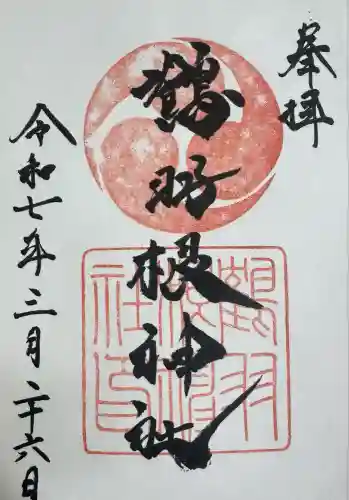 奉拝
鶴羽根神社
令和七年三月二十六日
鶴羽
根神
社印